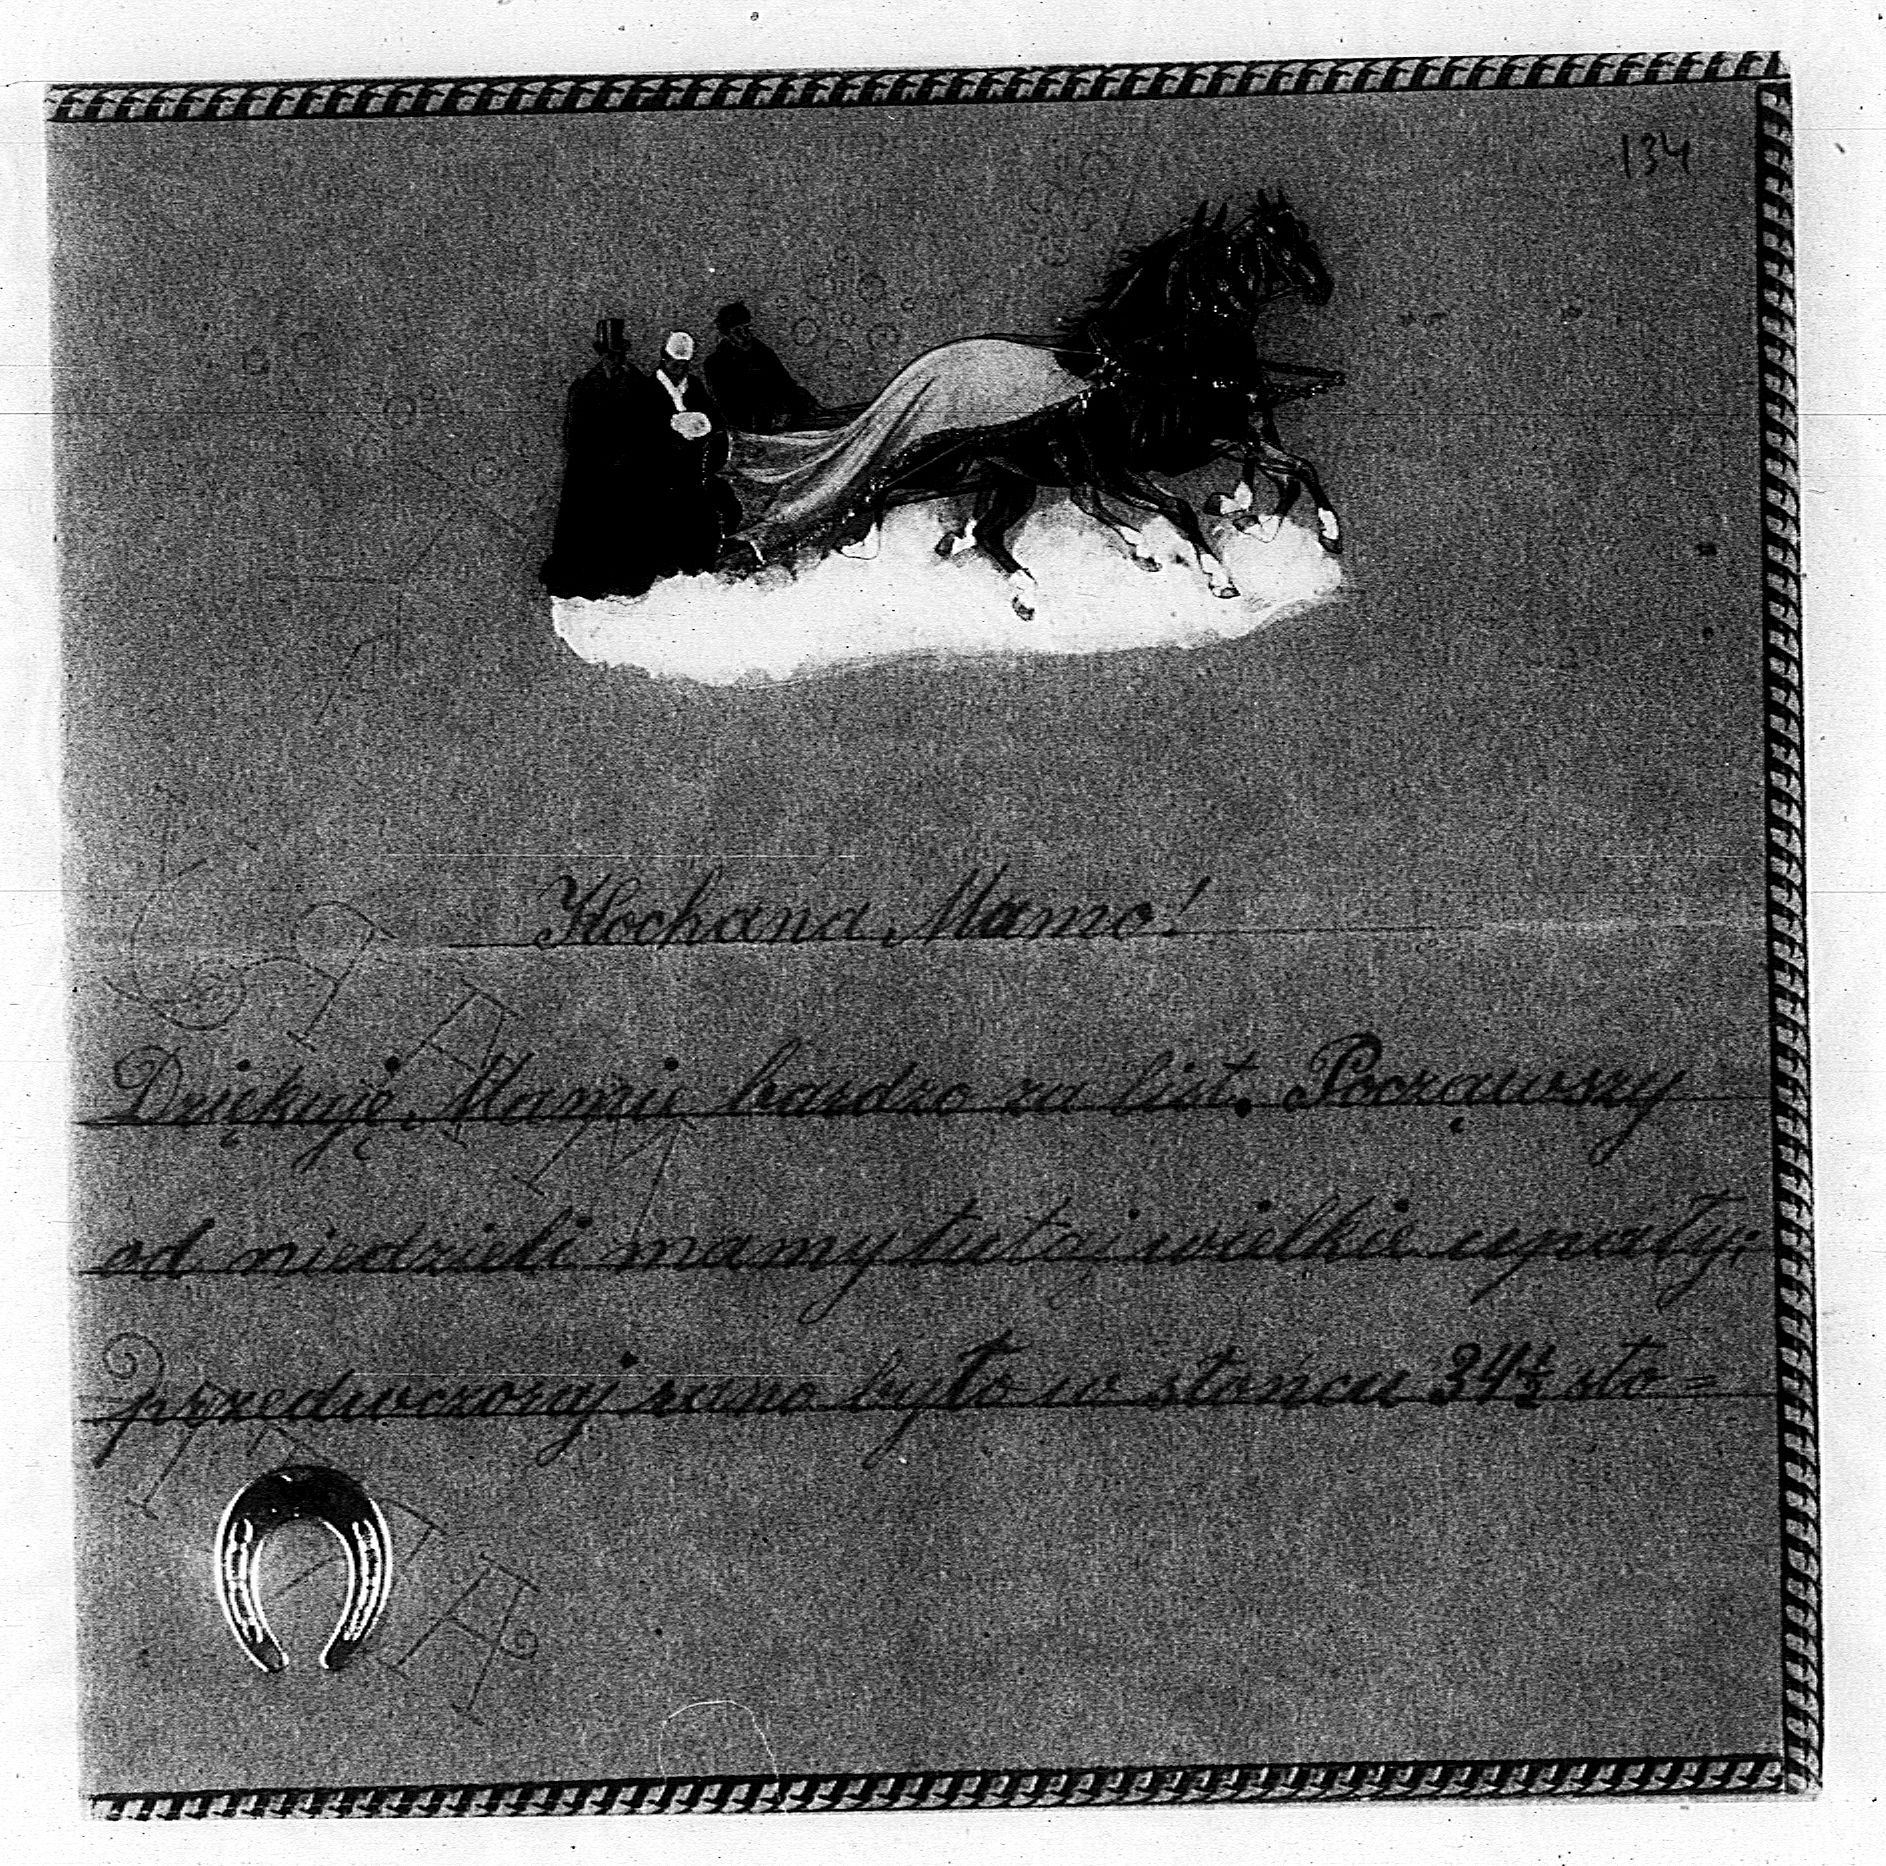 134
Kochana Mamo!
Dziękuję Mamie bardzo za list. Począwszy
od niedzieli mamy tutaj wielkie upały;
przedwczoraj rano było w słońcu 34½ sto=